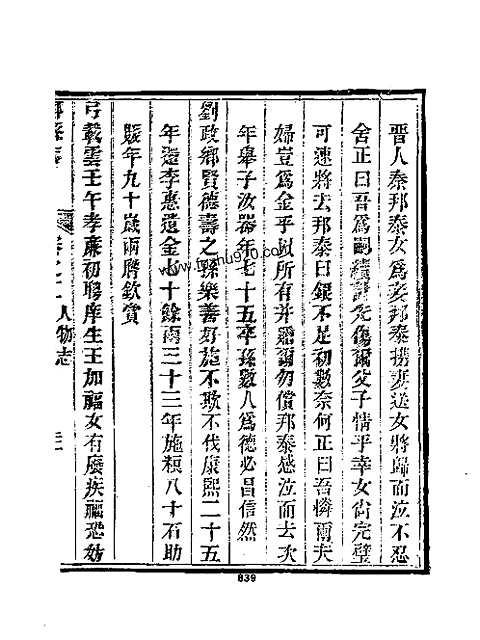 晋人秦邦泰女為妾邦泰携妻送女將歸而泣不忍
舍正曰吾為嗣續計先傷爾父子情乎幸女尚完璧
可速將去邦泰曰銀不足初數奈何正曰吾憐爾夫
婦豈為金乎以所有并贈爾勿償邦泰感泣而去次
年舉子汝器年七十五卒孫數人為德必昌信然
劉政鄉賢德壽之孫樂善好施不欺不伐康熙二十五
年還李惠遺金七十餘兩三十三年施粟八十石助
賑年九十歲兩膺欽賞
弓載雲壬午孝廉初聘庠生王加福女有廢疾福恐妨
卷之十 人物志
839